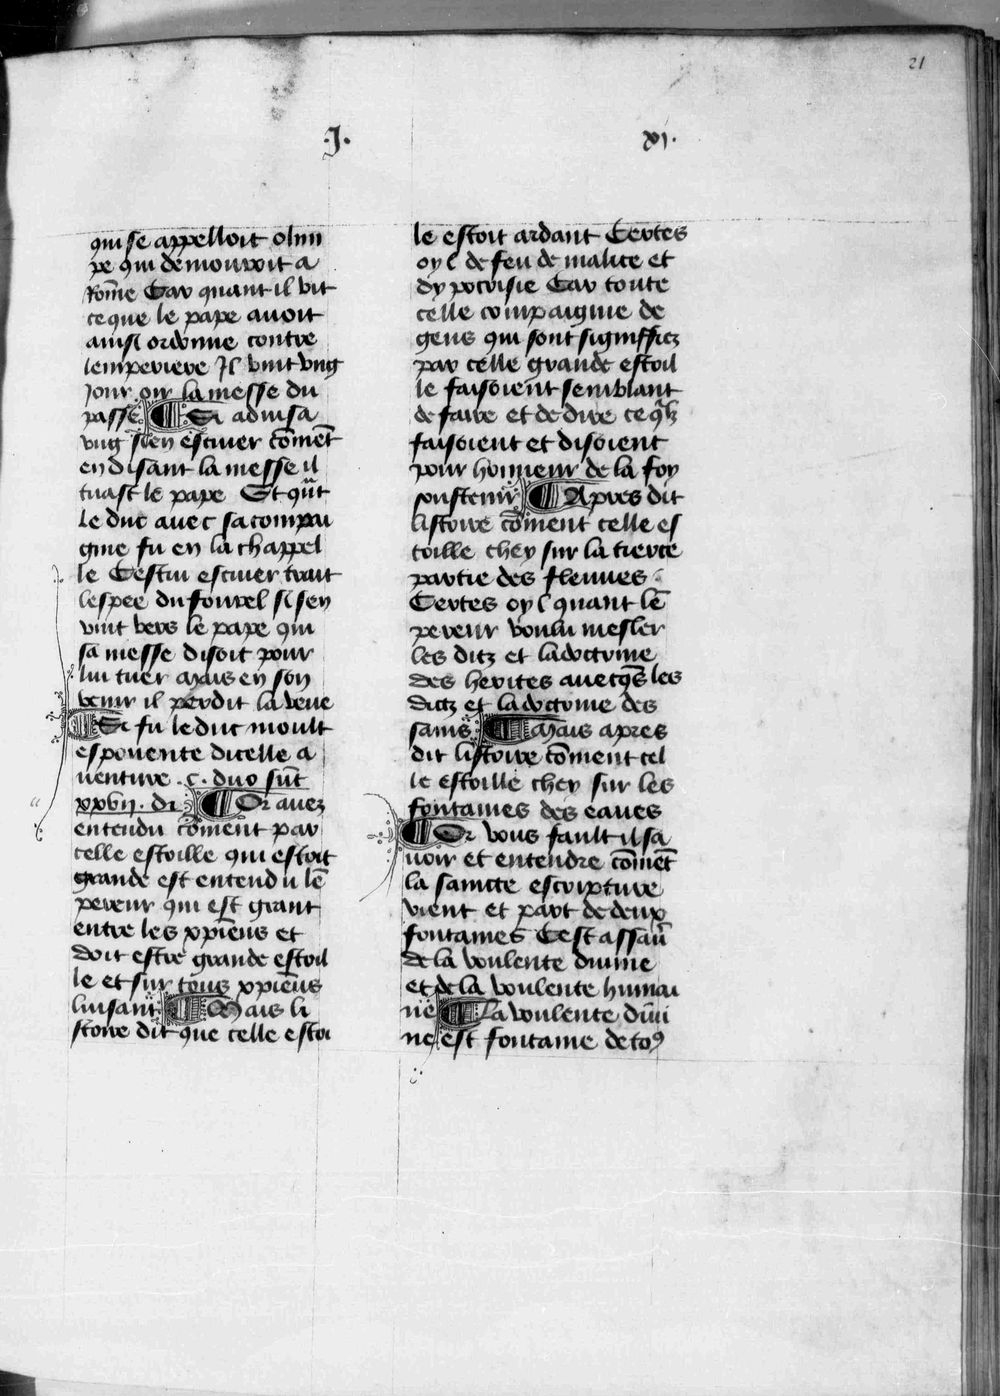 21
.J.
xj.
qui se appelloit olim
pe qui demouroit a
Rom̃e Car quant il vit
ce que le pape auoit
ainsi ordonne contre
lempeRiere Il vint vng
Jour oir la messe du
passe ¶ Si aduisa
vng sien escuier com̃ent
en disant la messe il
tuast le pape Et qñt
le duc auec sa compai
gnie fu en la chappel
le Cestui escuier trait
lespee du fourel si sen
vint vers le pape qui
sa messe disoit pour
lui tuer Mais en son
venir il perdit la veue
¶ Si fu le duc moult
espouente dicelle a
uenture . C. duo sũt
xxvij. di ¶ Or auez
entendu com̃ent par
celle estoille qui estoit
grande est entendu lẽ
pereur qui est grant
entre les xp̃iens et
doit estre grande estoil
le et sur tous xp̃iens
luisant ¶ Mais li
stoire dit que celle estoi
le estoit ardant Certes
oyl de feu de malice et
dypocrisie Car toute
celle compaignie de
gens qui sont signiffiez
par celle grande estoil
le faisoient semblant
de faire et de dire ce qͥlz
faisoient et disoient
pour honneur de la foy
soustenir ¶ Apres dit
listoire com̃ent celle es
toille chey sur la tierce
partie des fleuues .
Certes oyl quant lẽ
pereur voulu mesler
les ditz et la doctrine
des herites auecq̃s les
ditz et la doctrine des
sains ¶ Mais apres
dit listoire com̃ent cel
le estoille chey sur les
fontaines des eaues
¶ Or vous fault il sa
uoir et entendre com̃ent
la saincte escripture
vient et part de deux
fontaines Cest assau̾
de la voulente diuine
et de la voulente humai
ne ¶ La voulente diui
ne est fontaine de toꝰ